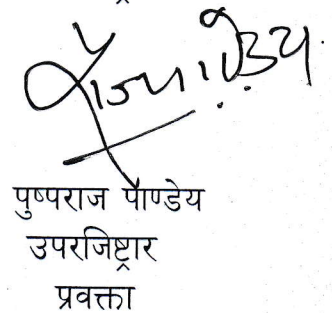 पुष्पराज पाण्डेय
उपरजिष्ट्रार
प्रवक्ता